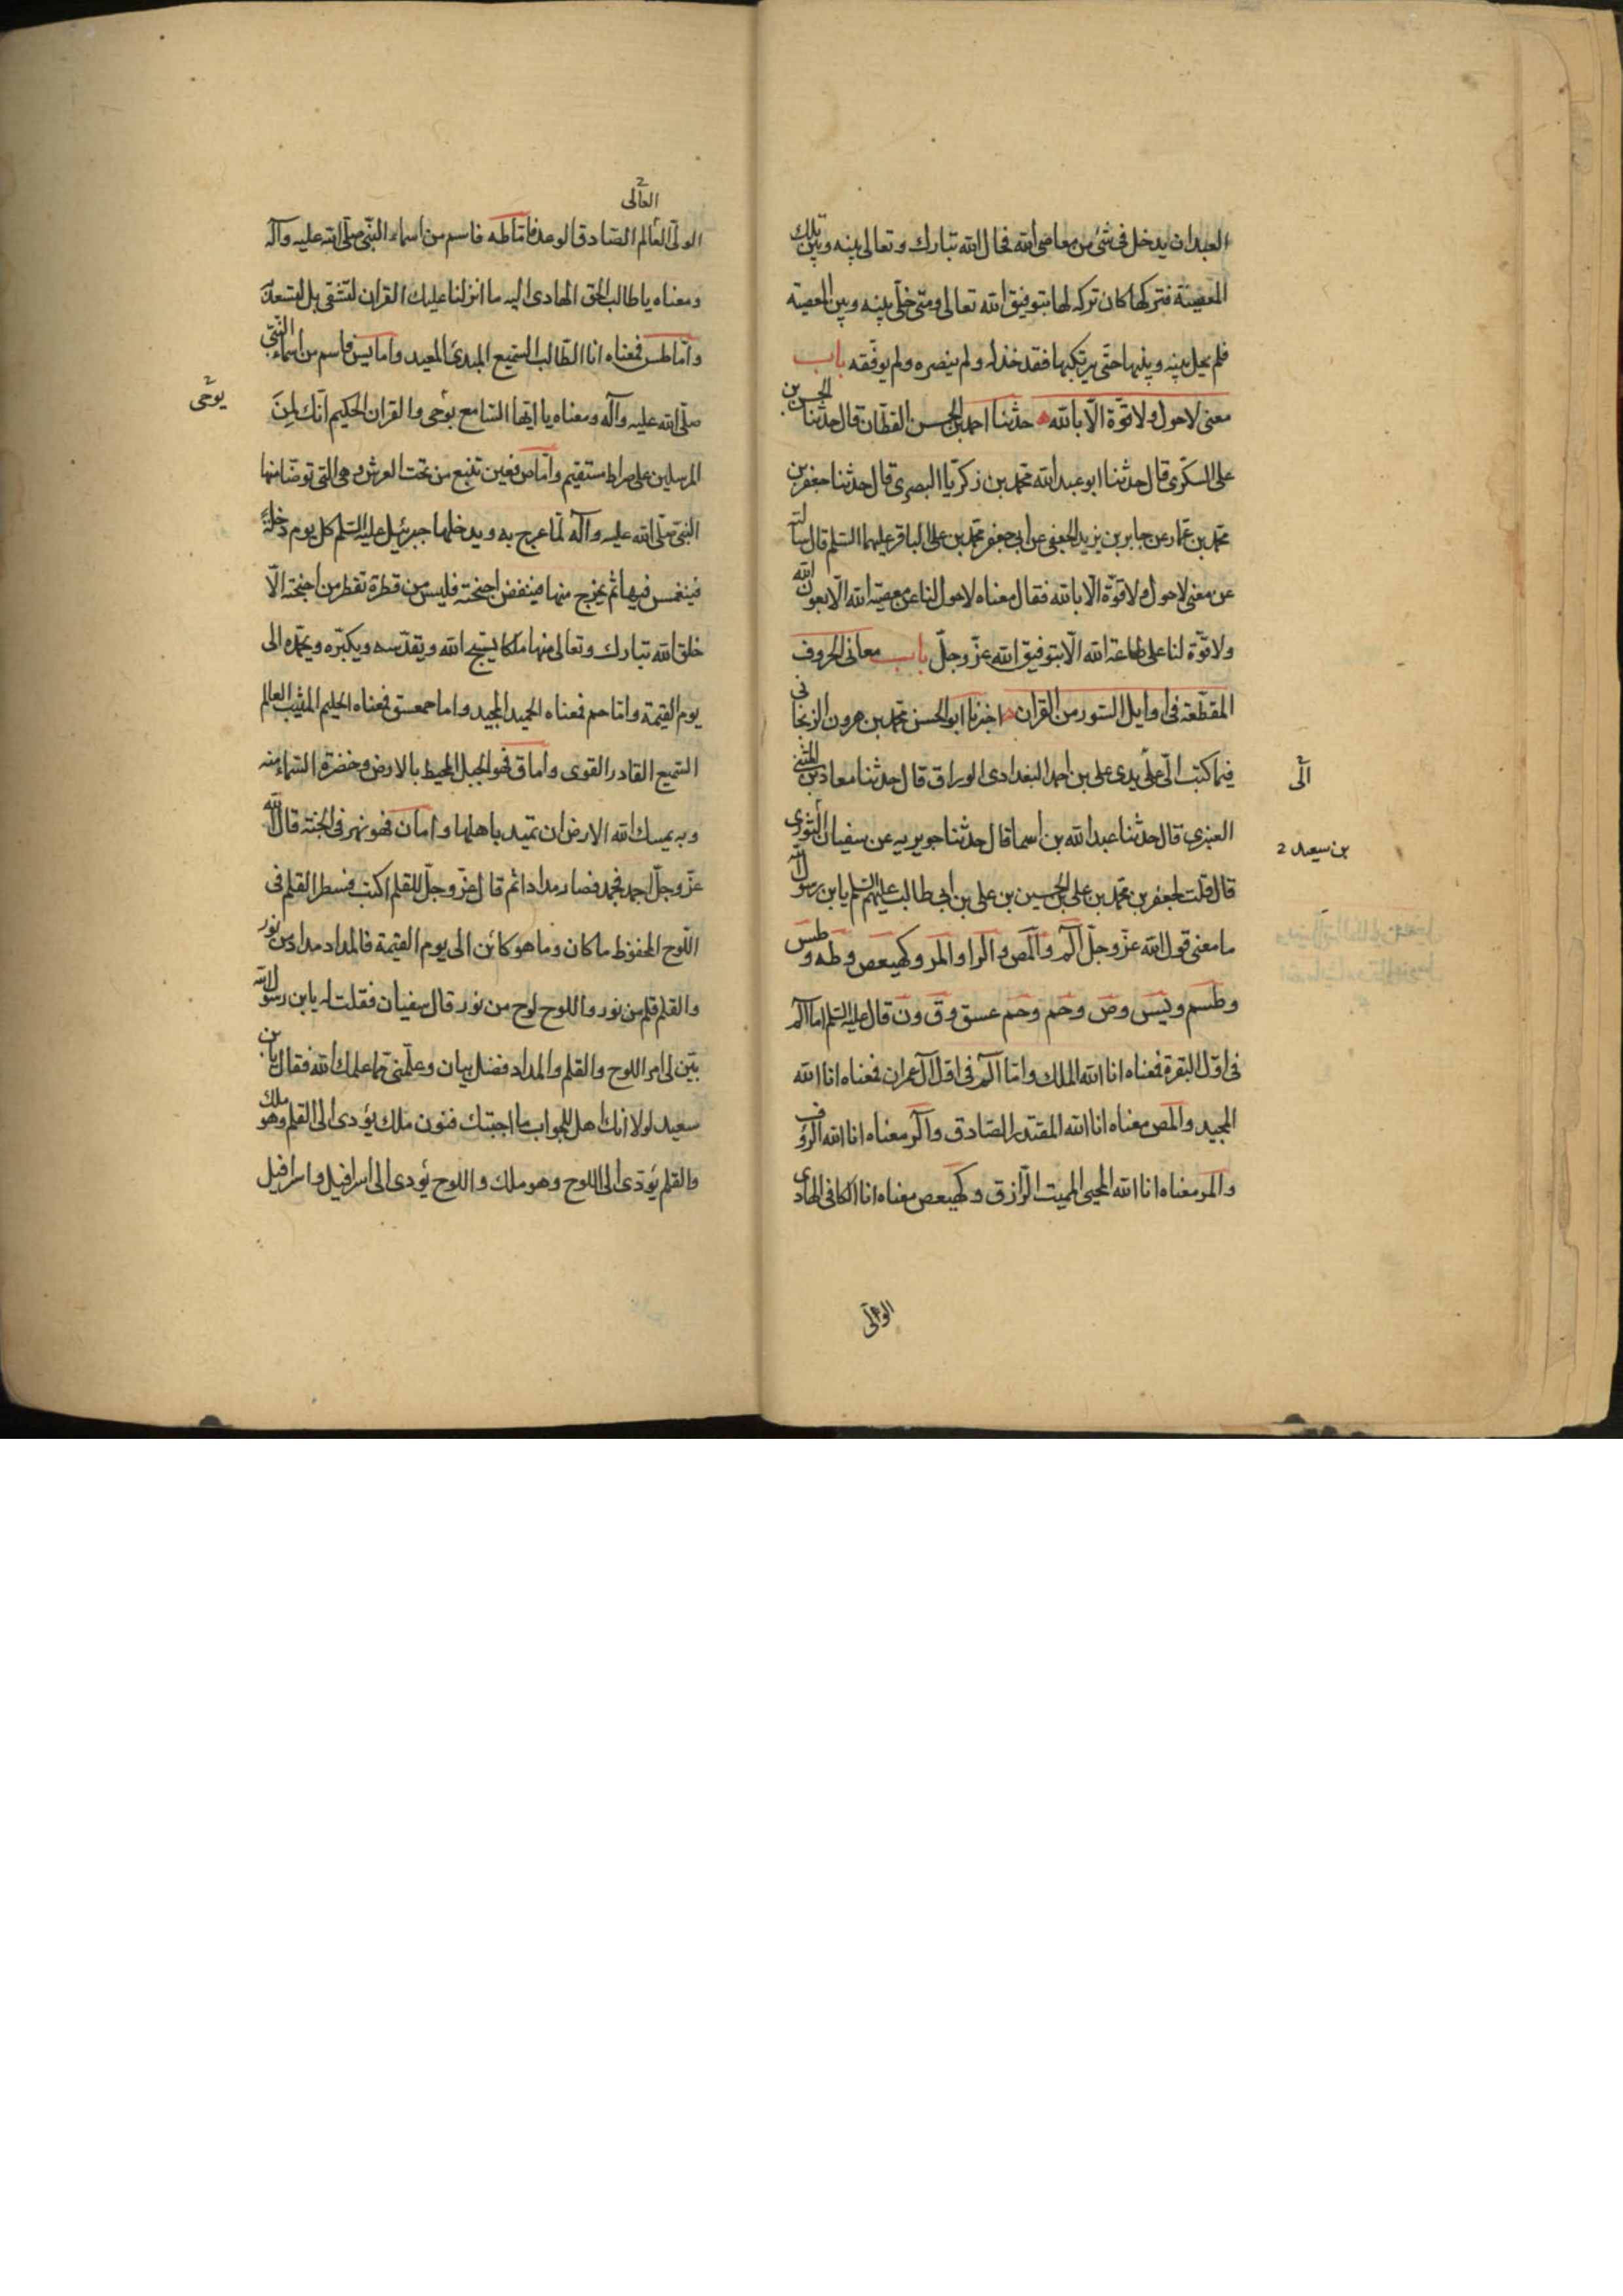 العبدان يدخل فى شئ من معاصى الله فحال الله تبارك وتعالى بينه وبين تلك
المعصية فتركها كان تركه لها بتوفيق الله تعالى ومتى خلّى بينه وبين المعصية
فلم يحل بينه وبينها حتّى يرتكبها فقد خذله ولم ينصره ولم يوفّقه باب
معنى لاحول ولا قوّة الّا بالله حدثنا احمد بن الحسن القطّان قال حدثنا الحسن بن
على السكّرى قال حدثنا ابو عبد الله محمّد بن زكريّا البصرى قال حدثنا جعفر بن
محمّد بن عمّار عن جابر بن يزيد الجعفى عن ابى جعفر محمّد بن على الباقر عليهما السّلم قال سألته
عن معنى لاحول ولا قوّة الّا بالله فقال معناه لاحول لنا عن معصية الله الّا بعون الله
ولا قوّة لنا على طاعة الله الّا بتوفيق الله عزّ وجلّ باب معانى الحروف
المقطّعة فى اوايل السّور من القران اخبرنا ابو الحسن محمّد بن هرون الزنجانى
فيما كتب الىّ على يدى على بن احمد البغدادى الوراق قال حدثنا معاد بن المثنى
الىّ
العنبرى قال حدثنا عبد الله بن اسما قال حدثنا جويريه عن سفيان الثورى
بن سعيد 2
قال قلت لجعفر بن محمّد بن على بن الحسين بن على بن ابى طالب عليهم السّلم يا بن رسول الله
ما معنى قول الله عزّ وجلّ الٓم والٓمص والٓرا والٓمر وكهيعص وطه وطس
وطسم ويس وص وحم وحم عسق وق ون قال عليه السّلم اما الٓم
فى اوّل البقرة فمعناه انا الله الملك وامّا الٓم فى اوّل آل عمران فمعناه انا الله
المجيد والمص معناه انا الله المقتدر الصّادق والٓر معناه انا الله الرؤف
والمر معناه انا الله المحيى المميت الرّازق وكهيعص معناه انا الكافى الهادى
الوالى
العالى 2
الولىّ العالم الصّادق الوعد فامّا طه فاسم من اسماء النبّى صلّى الله عليه وآله
ومعناه يا طالب الحق الهادى اليه ما انزلنا عليك القران لتشقى بل لتسعد
وامّا طس فمعناه انا الطّالب السّميع المبدئ المعيد واما يس فاسم من اسماء النّبىّ
صلّى الله عليه وآله ومعناه يا ايّها السّامع يوحى والقران الحكيم انّك لمن
يوحى 2
المرسلين على صراط مستقيم وامّا ص فعين تنبع من تحت العرش وهى التى توضّا منها
النبّى صلّى الله عليه وآله لمّا عرج به ويدخلها جبرئيل عليه السّلم كل يوم دخلة
فينغمس فيها ثم يخرج منها فينفض اجنحته فليس من قطرة تقطر من اجنحته الّا
خلق الله تبارك وتعالى منها ملكا يسّبح الله ويقدّسه ويكبّره ويحمّده الى
يوم القيمة وامّا حم فمعناه الحميد المجيد واما حمعسق فمعناه الحليم المثيب العالم
السّميع القادر القوى وأما ق فهو الجبل المحيط بالارض وخضرة السّماء منه
وبه يمسك الله الارض ان تميد باهلها واما ن فهو نهر فى الجنّة قال الله
عزّ وجلّ اجمد فجمد فصار مدادا ثم قال عزّ وجلّ للقلم اكتب فسطر القلم فى
اللّوح المحفوظ ما كان وما هو كائن الى يوم القيمة فالمداد مداد من نور
والقلم قلم من نور واللوح لوح من نور قال سفيان فقلت له يا بن رسول الله
بيّن لى امر اللوح والقلم والمداد فضل بيان وعلّمنى ممّا علمك الله فقال يا بن
سعيد لولا انك اهل للجواب ما اجبتك فنون ملك يؤدى الى القلم وهو ملك
والقلم يؤدّى الى اللوح وهو ملك واللوح يؤدى الى اسرافيل واسرافيل